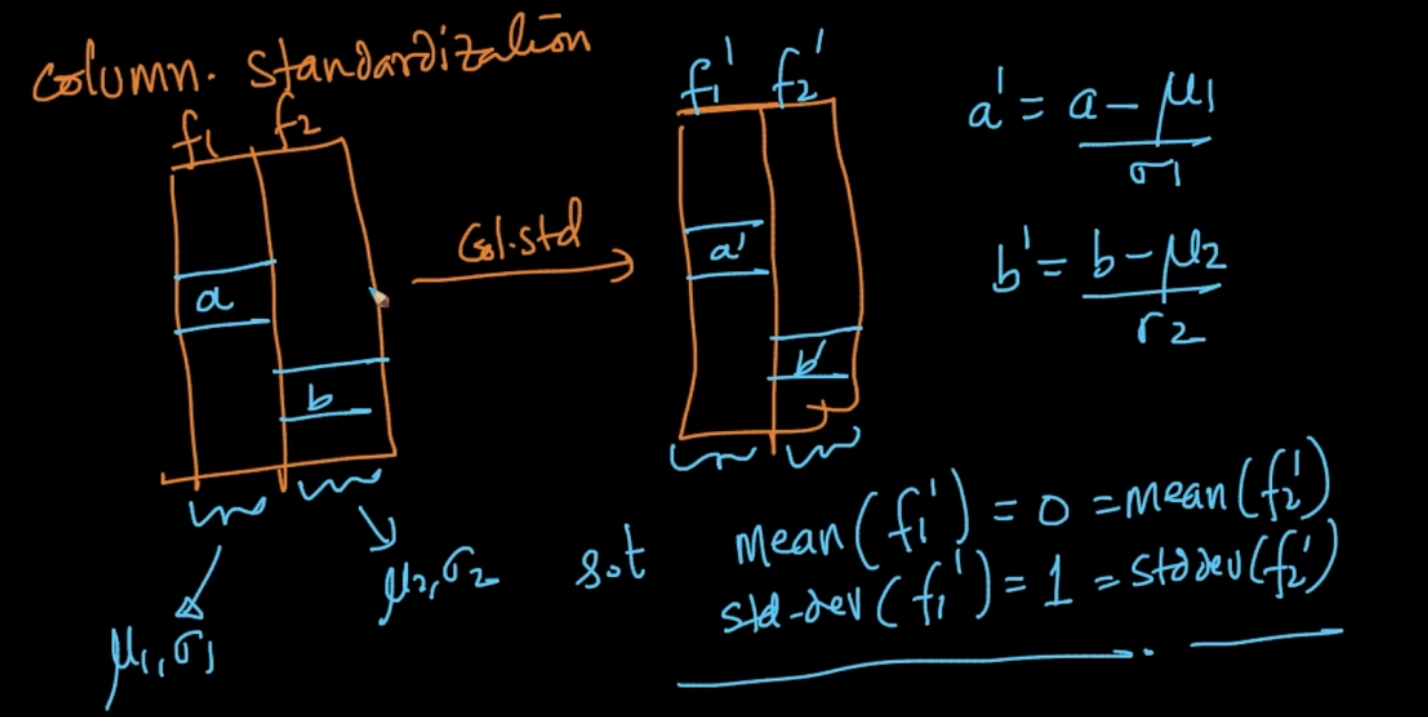 column. standardization
f1 f2
a
b
μ1, σ1
μ2, σ2
Col.std
f1' f2'
a'
b'
a' = a - μ1
σ1
b' = b - μ2
σ2
s.t mean(f1') = 0 = mean(f2')
std-dev(f1') = 1 = stddev(f2')